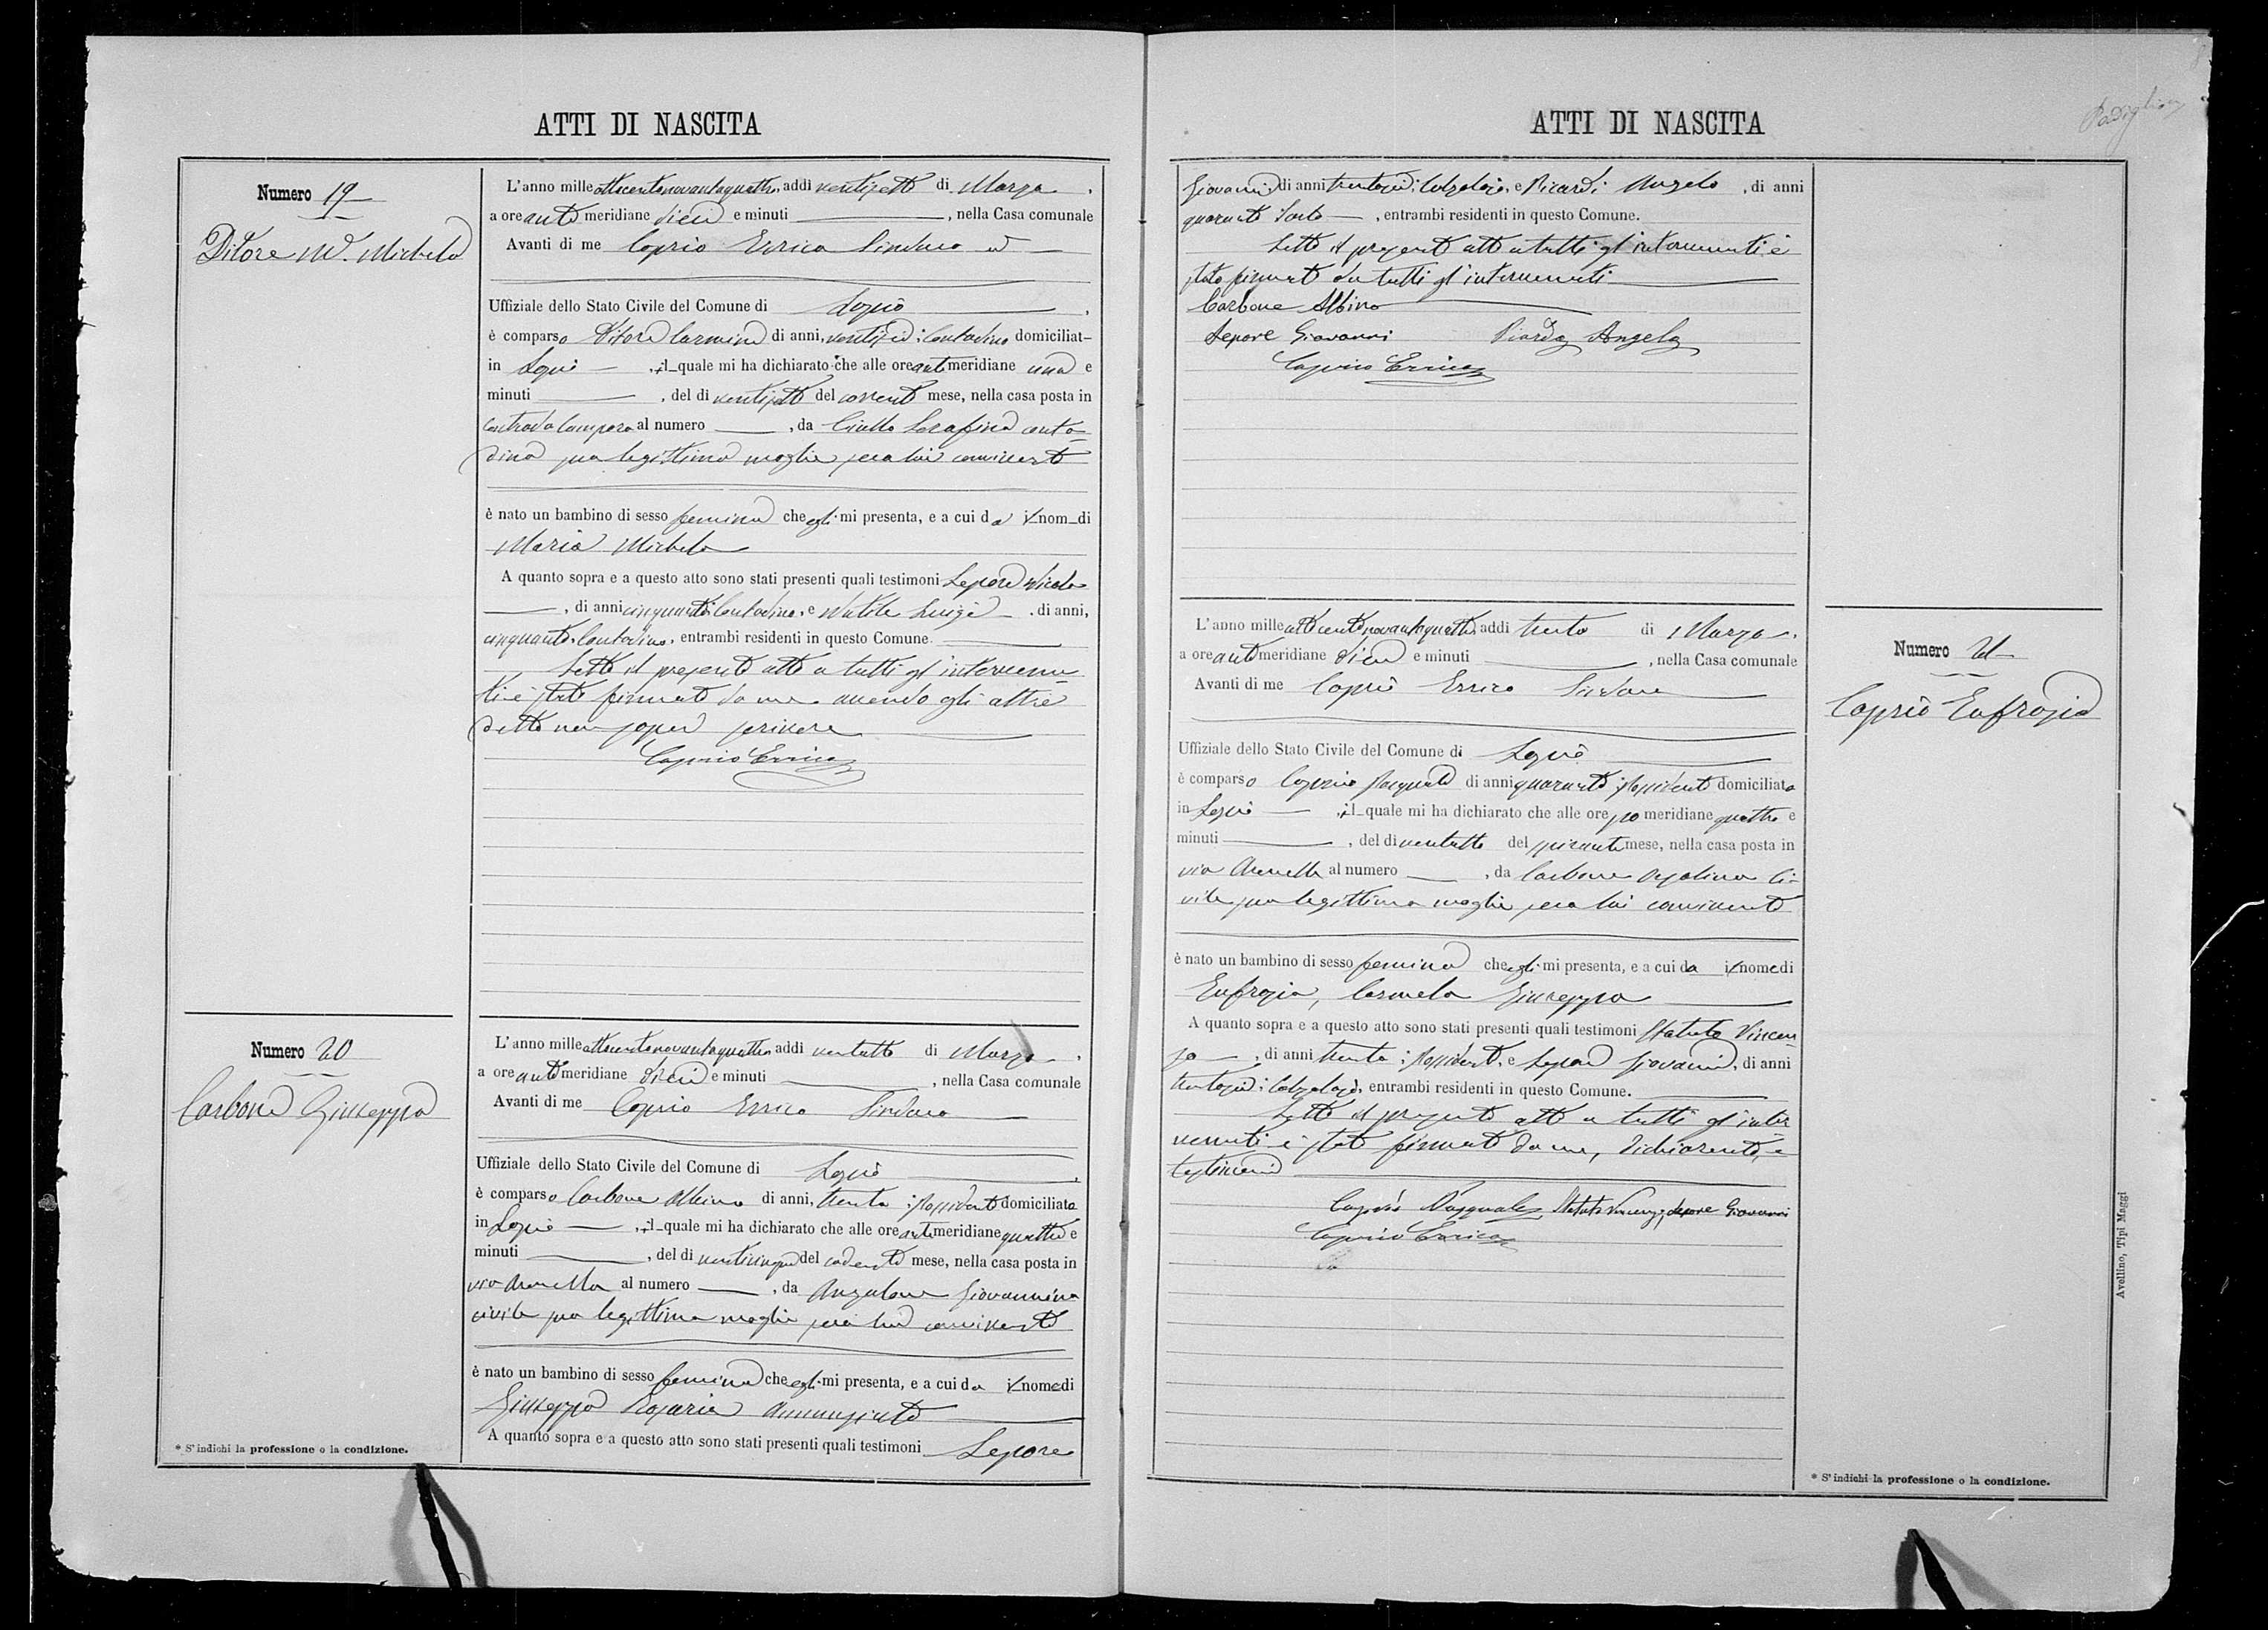 ATTI DI NASCITA
Numero 19
Ditore M. Michela
L'anno mille ottocentonovantaquattro, addì ventisette di Marzo,
a ore ante meridiane dieci e minuti , nella Casa comunale
Avanti di me Caprio Errico Sindaco
Uffiziale dello Stato Civile del Comune di
è comparso Ditore Carmine di anni, ventisei; Contadino domiciliat
in , il quale mi ha dichiarato che alle ore ante meridiane una e
minuti , del dì ventisette del corrente mese, nella casa posta in
Contrada al numero , da Ciullo Serafina conta-
dina sua legittima moglie seco lui convivente
è nato un bambino di sesso femina che egli mi presenta, e a cui da i nom di
Maria Michela
A quanto sopra e a questo atto sono stati presenti quali testimoni Lepore Nicola
, di anni cinquanta; Contadino, e Luigi , di anni,
cinquanta, Contadino, entrambi residenti in questo Comune.
Letto il presente atto a tutti gl'intervenu
ti è stato firmato da me avendo gli altri
detto non saper scrivere
Caprio Errico
Numero 20
Carbone Giuseppa
L'anno mille ottocentonovantaquattro addì ventotto di Marzo,
a ore ante meridiane dieci e minuti , nella Casa comunale
Avanti di me Caprio Errico Sindaco
Uffiziale dello Stato Civile del Comune di
è comparso Carbone Albino di anni, trenta; possidente domiciliato
in , il quale mi ha dichiarato che alle ore ante meridiane quattro e
minuti , del dì venticinque del cadente mese, nella casa posta in
via al numero , da Angelone Giovannina
civile sua legittima moglie seco lui convivente
è nato un bambino di sesso femina che egli mi presenta, e a cui da i nome di
Giuseppa Rosaria Annunziata
A quanto sopra e a questo atto sono stati presenti quali testimoni Lepore
* S'indichi la professione o la condizione.
ATTI DI NASCITA
Giovanni, di anni trentasei; Calzolaio, e Ricardi Angelo , di anni
quaranta Sarto , entrambi residenti in questo Comune.
Letto il presente atto a tutti gl'intervenuti è
stato firmato da tutti gl'intervenuti
Carbone Albino
Lepore Giovanni Angelo
Caprio Errico
Numero 21
Caprio Eufrasia
L'anno mille ottocentonovantaquattro, addì trenta di Marzo,
a ore ante meridiane dieci e minuti , nella Casa comunale
Avanti di me Caprio Errico Sindaco
Uffiziale dello Stato Civile del Comune di
è comparso Caprio Pasquale di anni quaranta; possidente domiciliato
in , il quale mi ha dichiarato che alle ore po meridiane quattro e
minuti , del dì ventotto del spirante mese, nella casa posta in
via al numero , da Carbone ci-
vile sua legittima moglie seco lui convivente
è nato un bambino di sesso femina che egli mi presenta, e a cui da i nome di
Eufrasia, Carmela Giuseppa
A quanto sopra e a questo atto sono stati presenti quali testimoni Statuto Vincen
zo , di anni trenta; possidente, e Lepore Giovanni, di anni
trentasei; Calzolaio, entrambi residenti in questo Comune.
Letto il presente atto a tutti gl'inter
venuti è stato firmato da me, dichiarante, e
testimoni
Caprio Pasquale Statuto Vincenzo, Lepore Giovanni
Caprio Errico
* S'indichi la professione o la condizione.
Avellino, Tipi Maggi